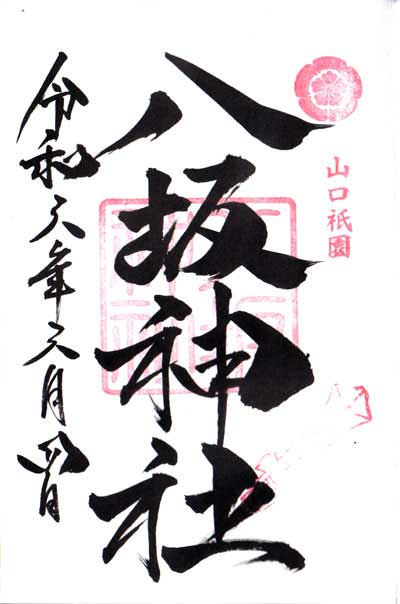 山口祇園
八坂神社
令和六年六月四日